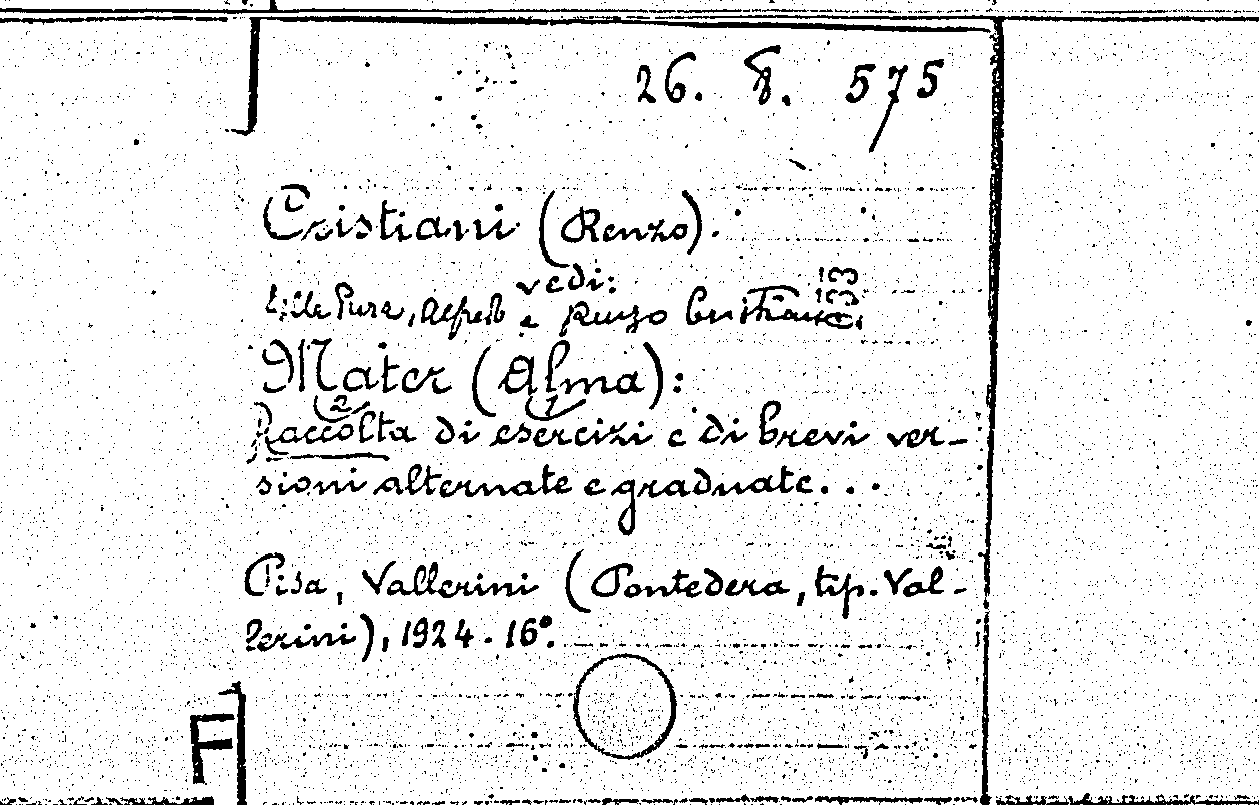 26. 8. 575
Cristiani (Renzo).
vedi:
Pura, Alfredo e Renzo Cristiani
Mater (Alma):
2 1
Raccolta di esercizi e di brevi ver-
sioni alternate e graduate...
Pisa, Vallerini (Pontedera, tip. Val-
lerini), 1924. 16°.
F